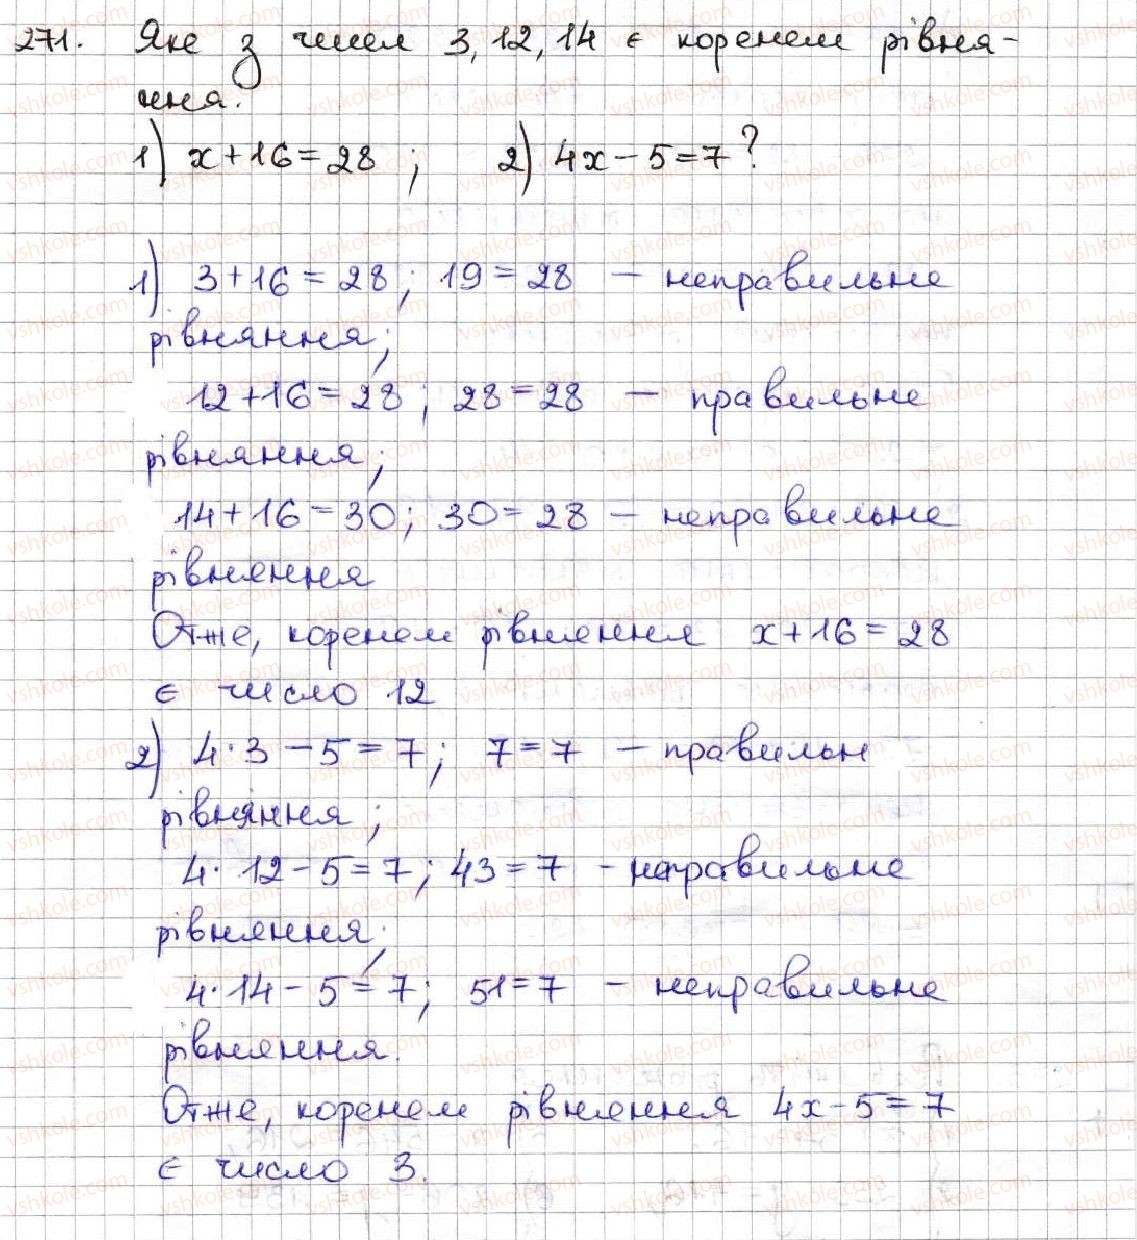 271. Яке з чисел 3, 12, 14 є коренем рівня-
ння.
1) x + 16 = 28 ; 2) 4x - 5 = 7 ?
1) 3 + 16 = 28 ; 19 = 28 – неправильне
рівняння;
12 + 16 = 28 ; 28 = 28 – правильне
рівняння;
14 + 16 = 30 ; 30 = 28 – неправильне
рівняння
Отже, коренем рівняння x + 16 = 28
є число 12
2) 4 · 3 - 5 = 7 ; 7 = 7 – правильн
рівняння ;
4 · 12 - 5 = 7 ; 43 = 7 – неправильне
рівняння;
4 · 14 - 5 = 7 ; 51 = 7 – неправильне
рівняння.
Отже, коренем рівняння 4x - 5 = 7
є число 3.